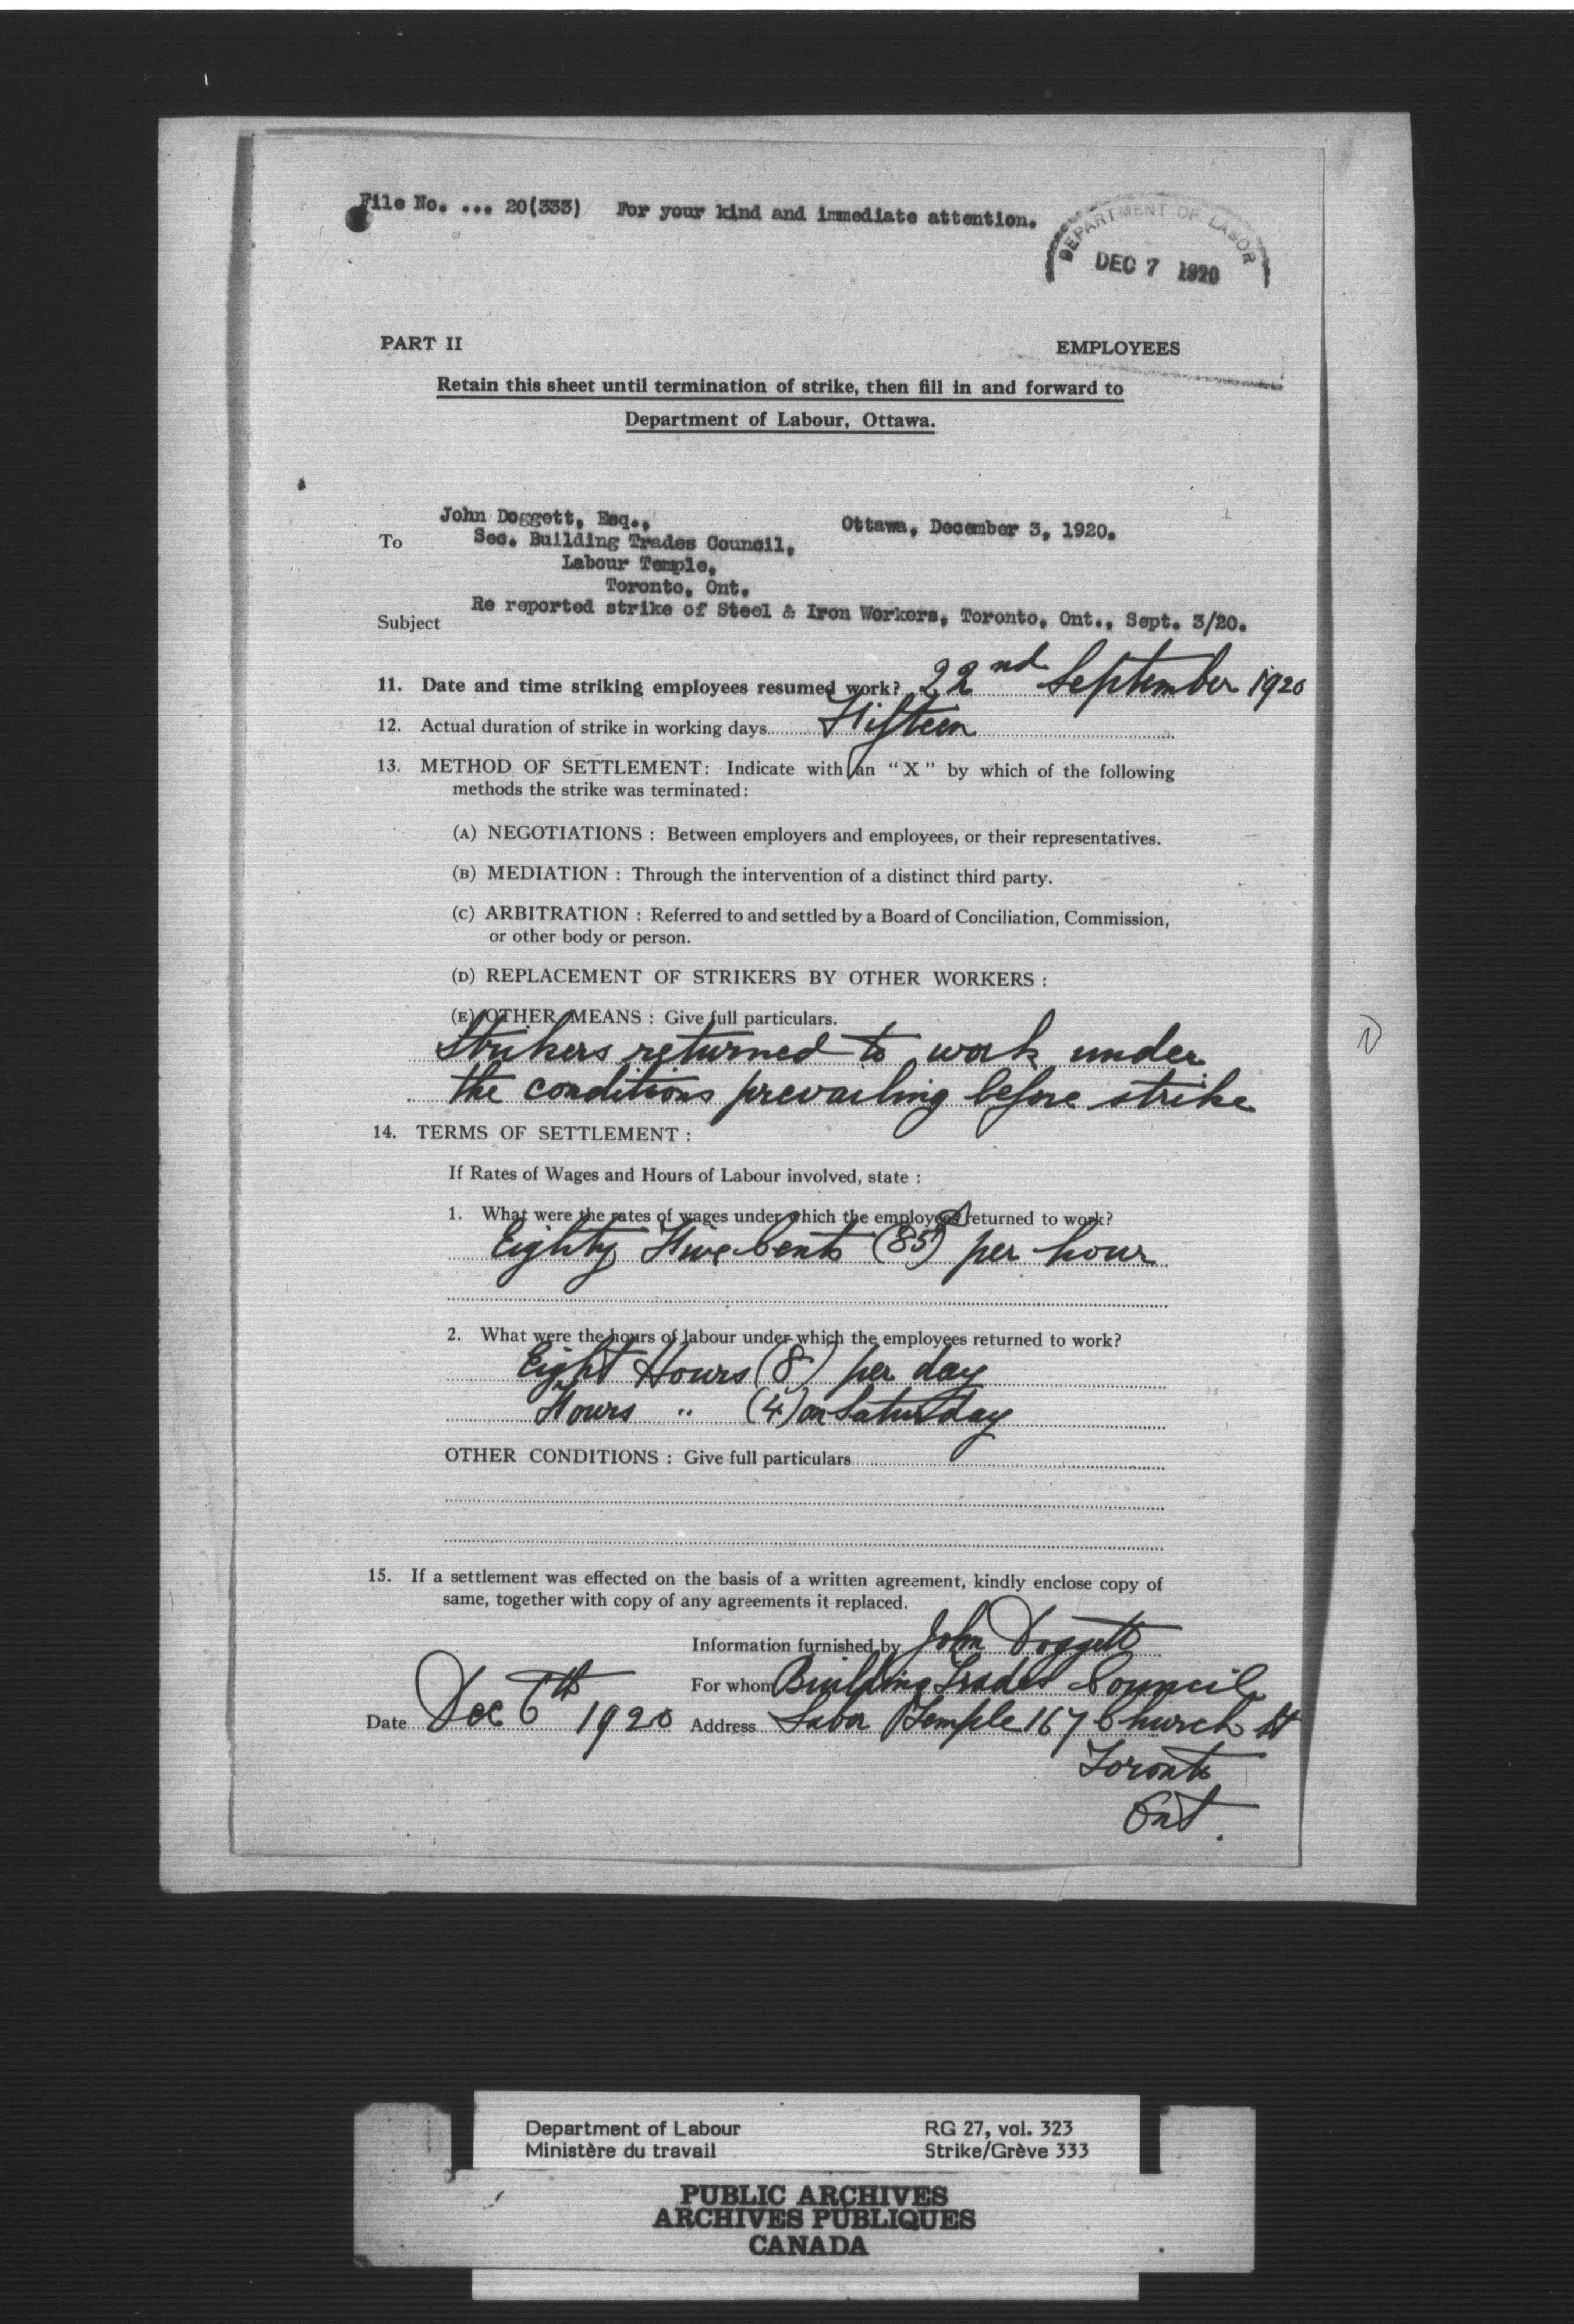 File No. ... 20(333) For your kind and immediate attention.
DEPARTMENT OF LABOR
DEC 7 1920
PART II EMPLOYEES
Retain this sheet until termination of strike, then fill in and forward to
Department of Labour, Ottawa.
John Doggett, Esq., Ottawa, December 3, 1920.
To Sec. Building Trades Council,
Labour Temple,
Toronto, Ont.
Subject Re reported strike of Steel & Iron Workers, Toronto, Ont., Sept. 3/20.
11. Date and time striking employees resumed work? 22nd September 1920
12. Actual duration of strike in working days Fifteen
13. METHOD OF SETTLEMENT: Indicate with an "X" by which of the following
methods the strike was terminated:
(A) NEGOTIATIONS : Between employers and employees, or their representatives.
(B) MEDIATION : Through the intervention of a distinct third party.
(C) ARBITRATION : Referred to and settled by a Board of Conciliation, Commission,
or other body or person.
(D) REPLACEMENT OF STRIKERS BY OTHER WORKERS :
(E) OTHER MEANS : Give full particulars.
Strikers returned to work under
the conditions prevailing before strike
14. TERMS OF SETTLEMENT :
If Rates of Wages and Hours of Labour involved, state :
1. What were the rates of wages under which the employees returned to work?
Eighty Five Cents (85¢) per hour
2. What were the hours of labour under which the employees returned to work?
Eight Hours (8) per day
Hours " (4) on Saturday
OTHER CONDITIONS : Give full particulars
15. If a settlement was effected on the basis of a written agreement, kindly enclose copy of
same, together with copy of any agreements it replaced.
Information furnished by John Doggett
For whom Building Trades Council
Date Dec 6th 1920 Address Labor Temple 167 Church St
Toronto
Ont.
Department of Labour RG 27, vol. 323
Ministère du travail Strike/Grève 333
PUBLIC ARCHIVES
ARCHIVES PUBLIQUES
CANADA